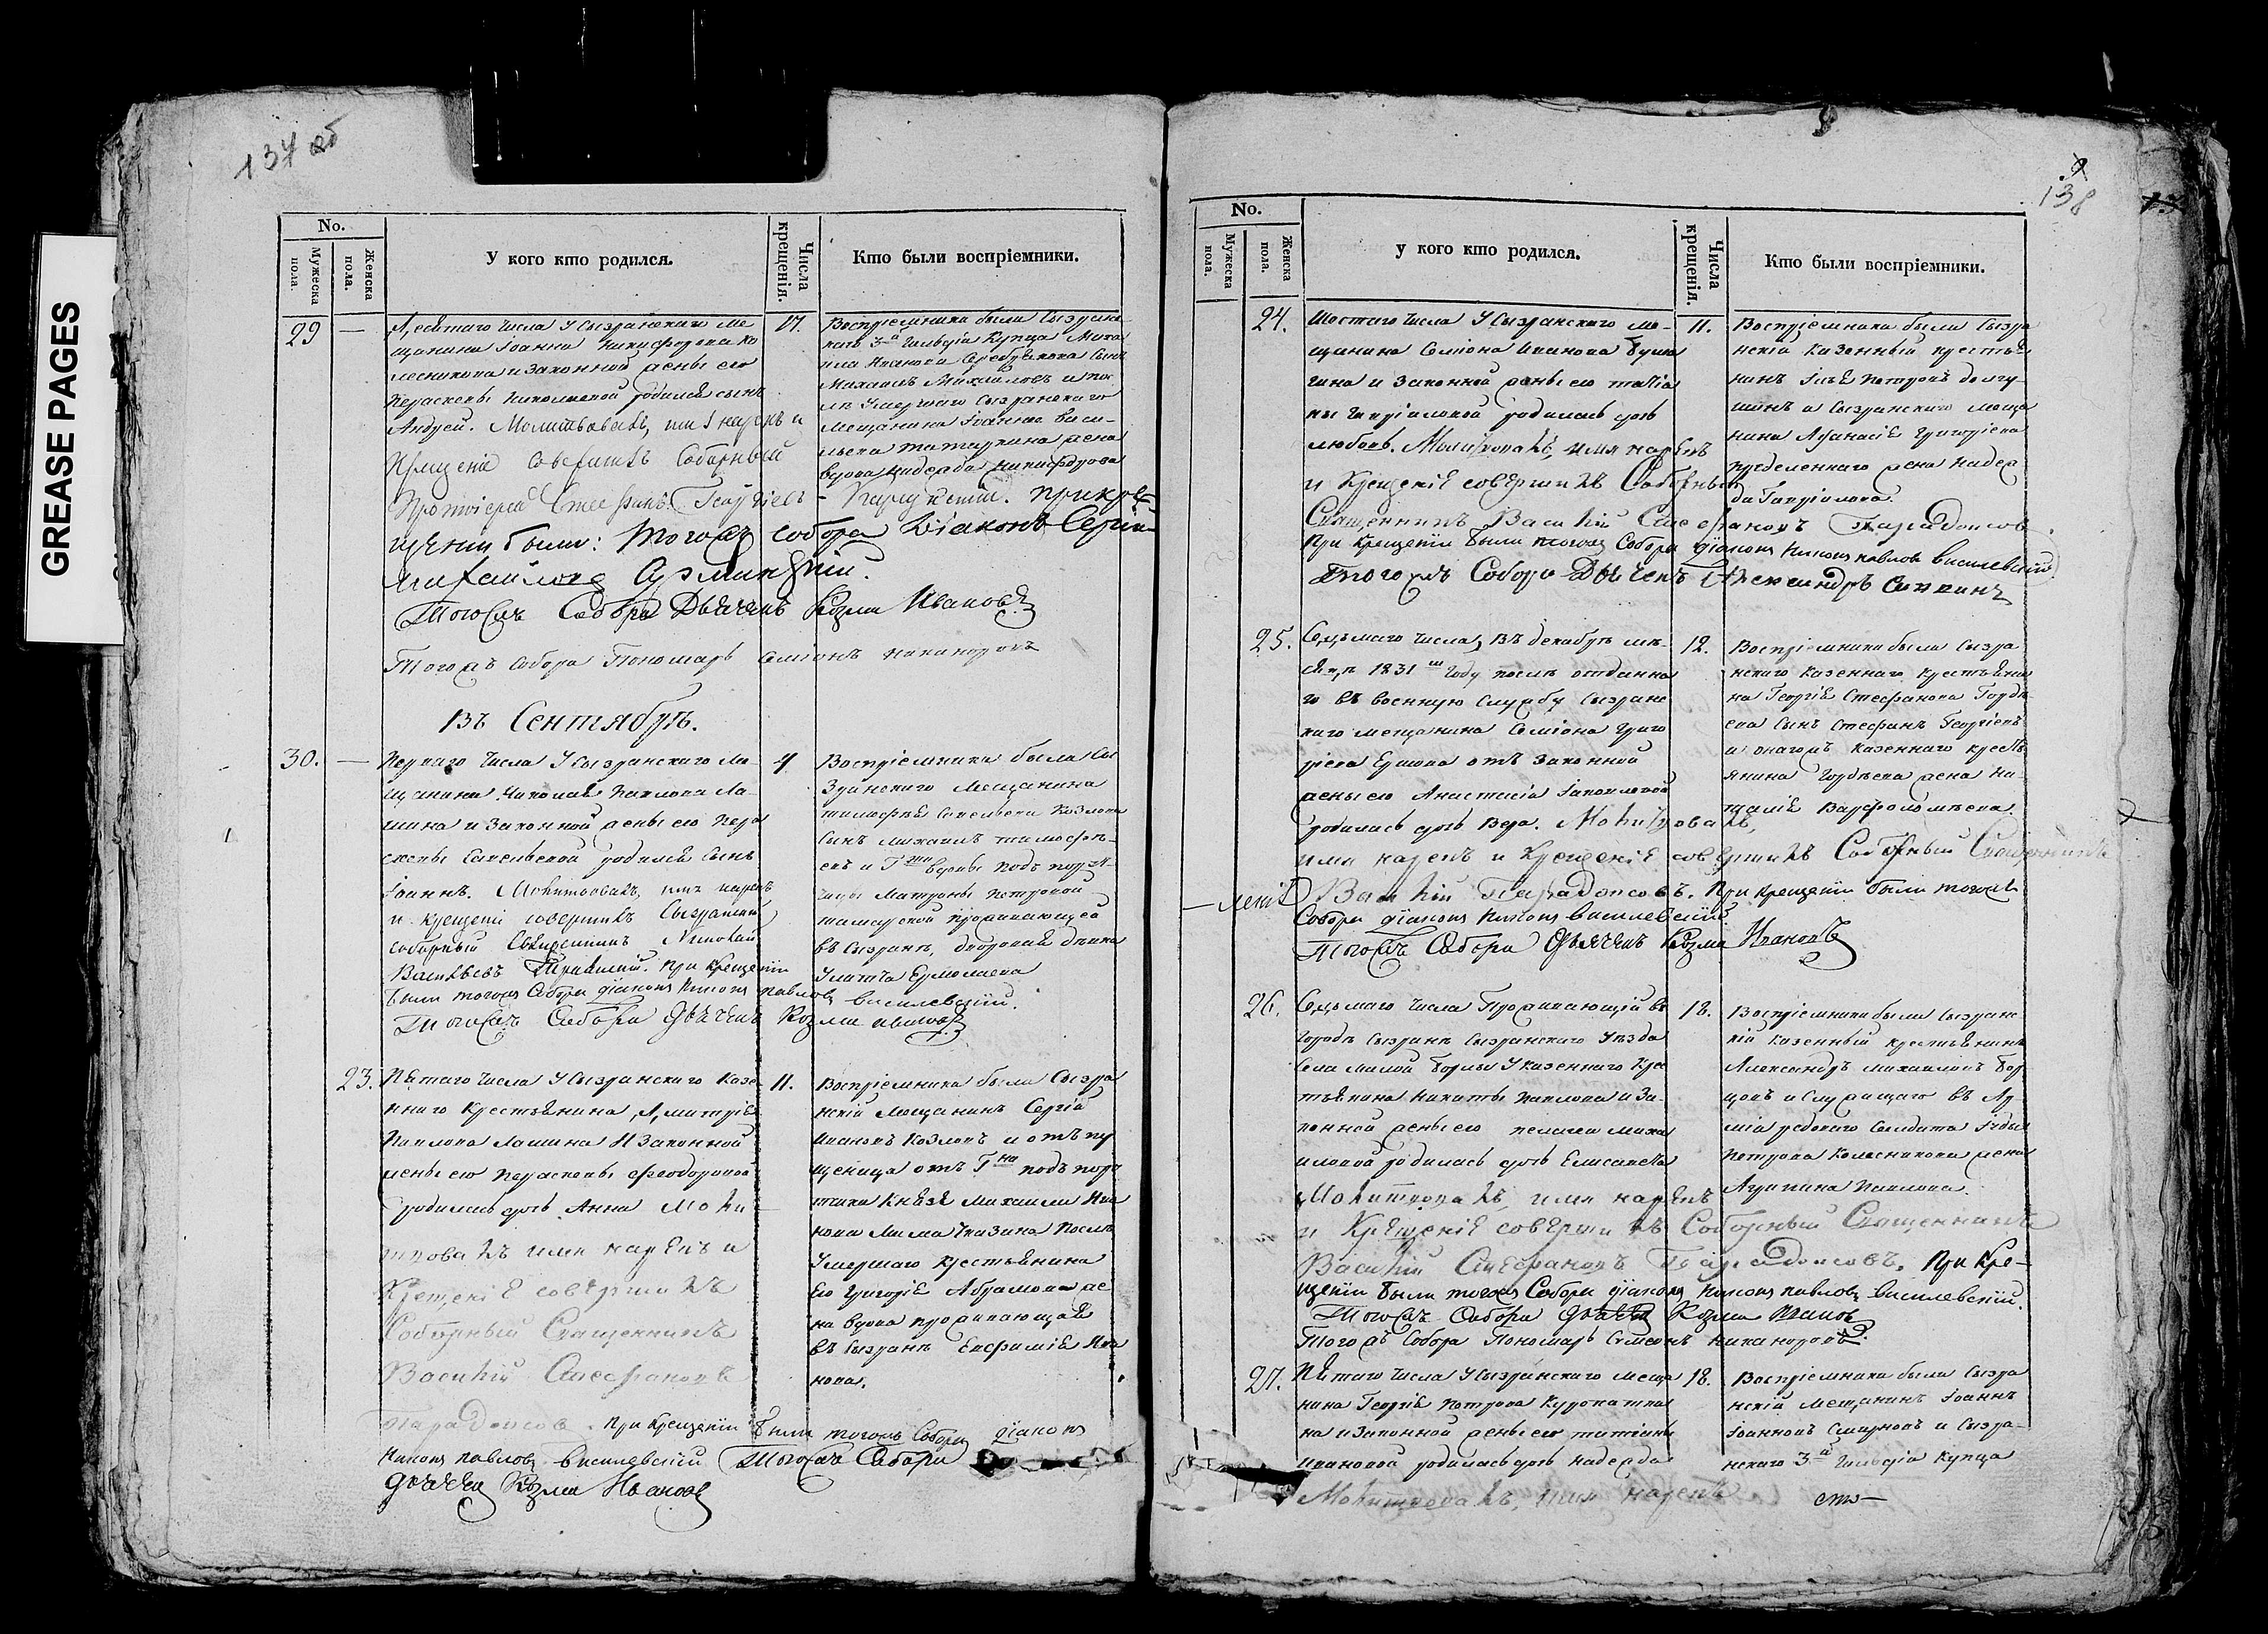 137 об
GREASE PAGES
No.
Мужеска пола.
Женска пола.
У кого кто родился.
Числа крещенія.
Кто были воспріемники.
29 —
Десятаго числа У Сызранскаго ме
щанина Іоанна Никифорова Ко
лесникова и законной жены его
Параскевы Николаевой родился сынъ
Андрей. Молитвовалъ, имя нарекъ и
Крещеніе совершилъ Соборный
Протоіерей Стефанъ Георгіевъ
17.
Воспріемники были Сызран
скаго 3й Гильдіи Купца Миха
ила Иванова Серебрякова сынъ
Михаилъ Михайловъ и пос
лѣ умершаго Сызранскаго
Мещанина Іоанна Васи-
льева жена
вдова Надежда Никифорова
при кре-
щеніи были: тогожъ собора Діаконъ Сергій
Михайловъ
Тогожъ Собора Дьячекъ Козма Ивановъ
Тогожъ Собора Пономарь Симеонъ Никаноровъ
Въ Сентябрѣ.
30. —
Перваго числа У Сызранскаго Ме-
щанина Николая Павлова Ла-
шина и законной жены его Пара
скевы Савельевой родился сынъ
Іоаннъ. Молитвовалъ, имя нарекъ
и крещеніе совершилъ Сызранскій
соборный Священникъ Николай
Васильевъ При крещеніи
были тогожъ Собора діаконъ Никонъ Павловъ Василевскій.
Тогожъ Собора Дьячекъ Козма Ивановъ
4
Воспріемники были Сы
зранскаго Мещанина
Тимофея Савельева Козлова
сынъ Михаилъ Тимофѣ-
евъ и Гжи вдовы подъ пору-
чицы Матроны Петровой
проживающей
въ Сызранѣ, дворовая дѣвка
Улитта Ермолаева
23.
Пятаго числа У Сызранскаго Казе
ннаго Крестьянина Димитрія
Павлова Лашина И законной
жены его Параскевы Феодоровой
родилась дочь Анна Моли-
твовалъ имя нарекъ и
Крещеніе совершилъ
Соборный Священникъ
Василій Стефановъ
Парадоксовъ. При крещеніи были тогожъ Собора діаконъ
Никонъ Павловъ Василевскій Тогожъ Собора
Дьячекъ Козма Ивановъ
11.
Воспріемники были Сызра
нскій Мещанинъ Сергій
Ивановъ Козловъ и отъпу
щеница отъ Гна подъ пору
тчика Князя Михаила Ива
нова Мамаказина послѣ
Умершаго Крестьянина
Его Григорія Абрамова же
на вдова проживающая
въ Сызранѣ Евфимія Ива
нова.
138
No.
Мужеска пола.
Женска пола.
у кого кто родился.
Числа крещенія.
Кто были воспріемники.
24.
Шестаго числа У Сызранскаго ме-
щанина Семіона Иванова
и законной жены его Татіа
ны Гавріиловой родилась дочь
Любовь. Молитвовалъ, имя нарекъ
и Крещеніе совершилъ Соборный
Священникъ Василій Стефановъ Парадоксовъ.
При крещеніи были тогожъ Собора діаконъ Никонъ Павловъ Василевскій
Тогожъ Собора Дьячекъ Александръ
11.
Воспріемники были Сызра
нскій Казенный крестья
нинъ Илья Петровъ Долгу-
шинъ и Сызранскаго меща
нина Афанасія Григорьева
жена Надеж
да Гавріилова.
25.
Седьмаго числа, Въ декабрѣ мѣ-
сяцѣ 1831го Году послѣ отданна
го въ военную службу Сызранс
каго мещанина Семіона Григо
ріева Ершова отъ законной
жены его Анастасіи Іаковлевой
родилась дочь Вера. Молитвовалъ,
имя нарекъ и Крещеніе совершилъ Соборный Священникъ
Василій Парадоксовъ. При крещеніи были тогожъ
Собора діаконъ Никонъ Василевскій
Тогожъ Собора Дьячекъ Козма Ивановъ
12.
Воспріемники были Сызра
нскаго Казеннаго Крестьяни
на Георгія Стефанова Горде
ева сынъ Стефанъ Георгіевъ
и онагожъ казеннаго кресть
янина Гордѣева жена На-
талія Варфоломѣева.
26.
Седьмаго числа Проживающій въ
Городѣ Сызранѣ Сызранскаго Уѣзда
Села Малой Борлы У казеннаго Крес
тьянина Никиты Павлова и За-
конной жены его Пелагеи Миха
иловой родилась дочь Елисавета
Молитвовалъ, имя нарекъ
и Крещеніе совершилъ Соборный Священникъ
Василій Стефановъ Парадоксовъ. При кре-
щеніи были тогожъ Собора діаконъ Никонъ Павловъ Василевскій.
Тогожъ Собора Дьячекъ Козма Ивановъ
Тогожъ Собора Пономарь Симеонъ Никаноровъ.
18.
Воспріемники были Сызранс
кій Казенный крестьянинъ
Александръ Михаиловъ Бор
цовъ и служащаго въ Ар-
міи рядоваго Солдата
Петрова Колесникова жена
Агрипина Павлова.
27.
Пятаго числа У Сызранскаго меща
нина Георгія Петрова Куропатки
на и законной жены его Татіаны
Ивановой родилась дочь Надежда
Молитвовалъ, имя нарекъ
18.
Воспріемники были Сызра
нскій Мещанинъ Іоаннъ
Іоанновъ Смирновъ и Сызра-
нскаго 3й Гильдіи Купца